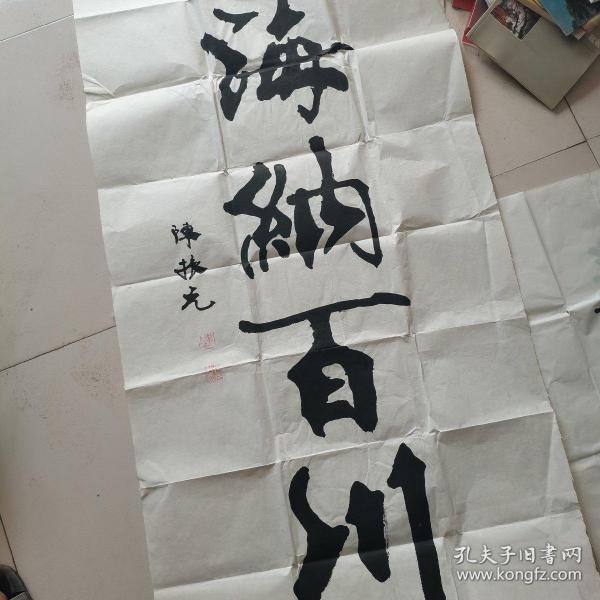 海納百川
陳振元
孔夫子旧書网
www.kongfz.com